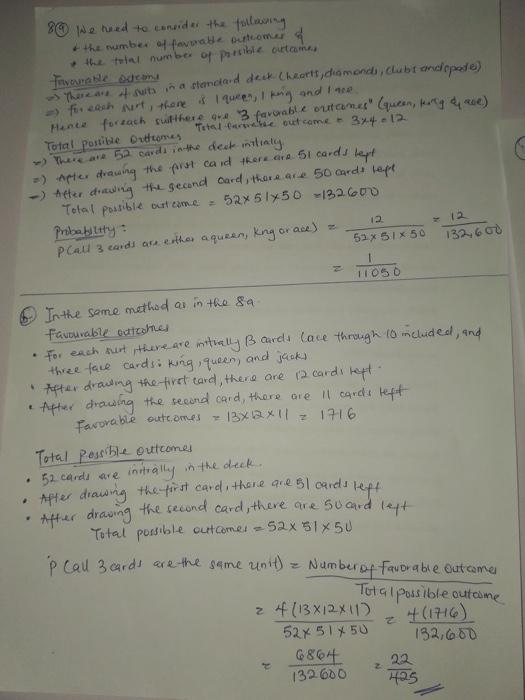 8(a) We need to consider the following
* the number of favourable outcomes &
* the total number of possible outcomes
Favourable outcome
=) There are 4 suits in a standard deck (hearts, diamonds, clubs and spade)
=) for each surt, there is 1 queen, 1 king and 1 ace.
Hence for each suit there are "3 favorable outcomes" (queen, king & ace)
Total favorable outcome = 3x4 = 12
Total possible outcomes
=) There are 52 cards in the deck initialy
=) After drawing the first card there are 51 cards left
=) After drawing the second card, there are 50 cards left
Total possible out come = 52 x 51 x 50 = 132600
Probability:
P(all 3 cards are either a queen, kng or ace) = 12 / 52 x 51 x 50 = 12 / 132,600
= 1 / 11050
b. In the same method as in the 8a.
Favourable outcomes
• For each surt, there are initially 13 cards (ace through 10 included, and
three face cards: king, queen, and jacks
• After drawing the first card, there are 12 cards left.
• After drawing the second card, there are 11 cards left
Favorable outcomes = 13x12x11 = 1716
Total possible outcomes
• 52 cards are initially in the deck.
• After drawing the first card, there are 51 cards left
• After drawing the second card, there are 50 card left
Total possible outcomes = 52 x 51 x 50
P (all 3 cards are the same unit) = Number of favorable outcomes / Total possible outcome
= 4(13x12x11) / 52 x 51 x 50 = 4(1716) / 132,600
= 6864 / 132600 = 22 / 425